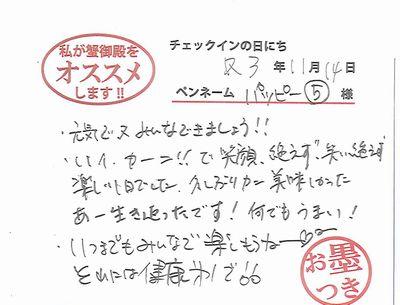 私が蟹御殿を
オススメ
します!!
チェックインの日にち
R3年11月14日
ペンネーム パッピー⑤様
・元気で又みんなできましょう!!
・いい、カーン!!で笑顔、絶えず、笑い絶えず
楽しい1日でした。久しぶりカニ美味しかった
あー生き返ったです!何でもうまい!
・いつまでもみんなで楽しもうねー♡
それには健康
お墨つき